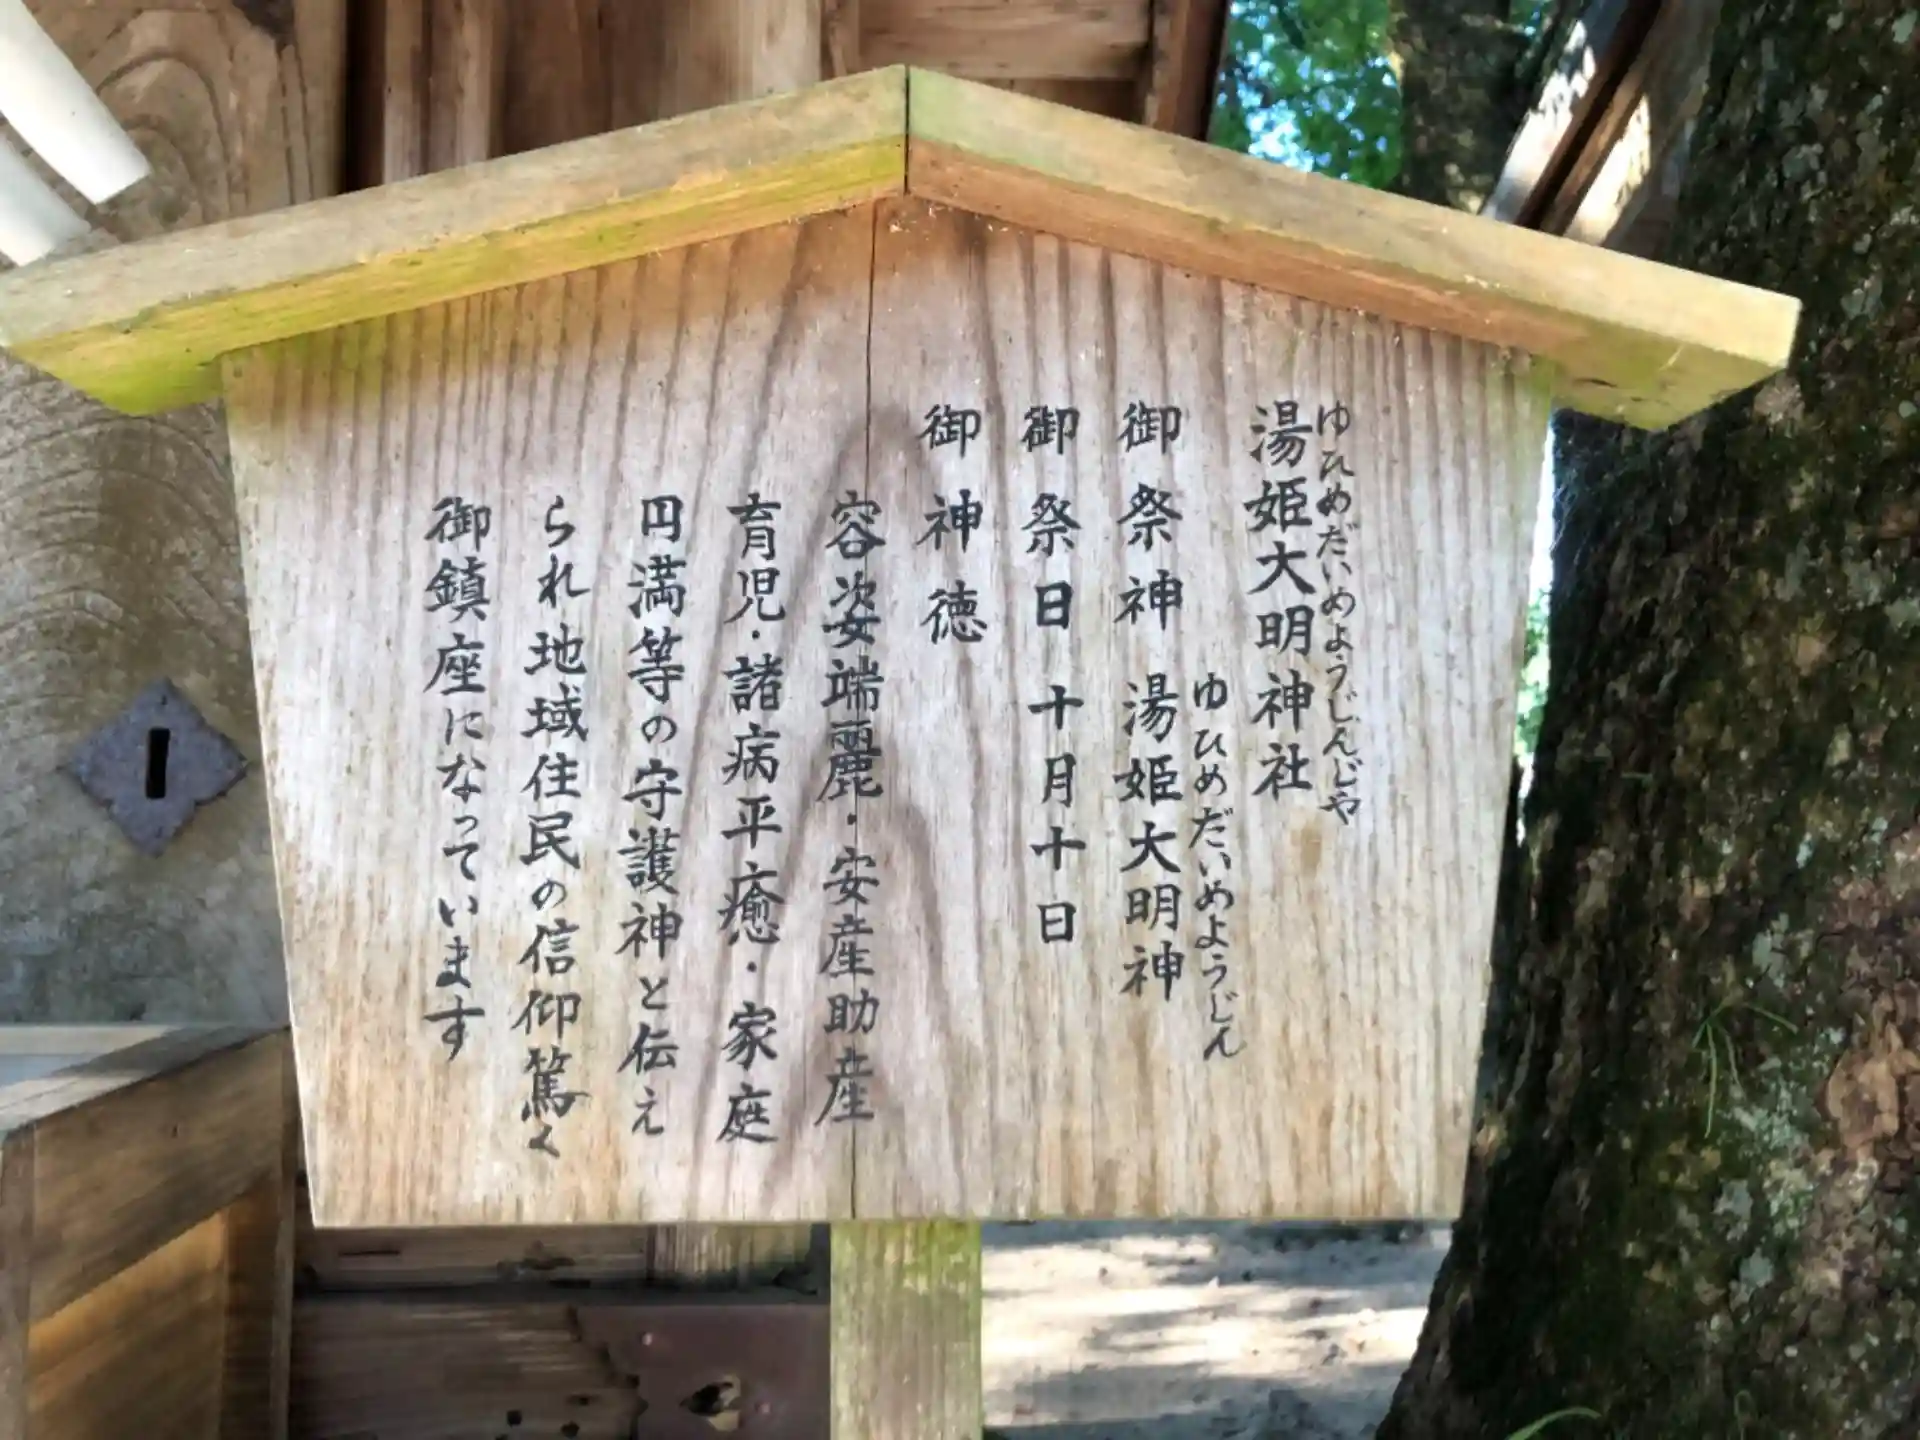 ゆひめだいめようじんじや
湯姫大明神社
ゆひめだいめようじん
御祭神 湯姫大明神
御祭日 十月十日
御神徳
容姿端麗・安産助産
育児・諸病平癒・家庭
円満等の守護神と伝え
られ地域住民の信仰篤く
御鎮座になっています